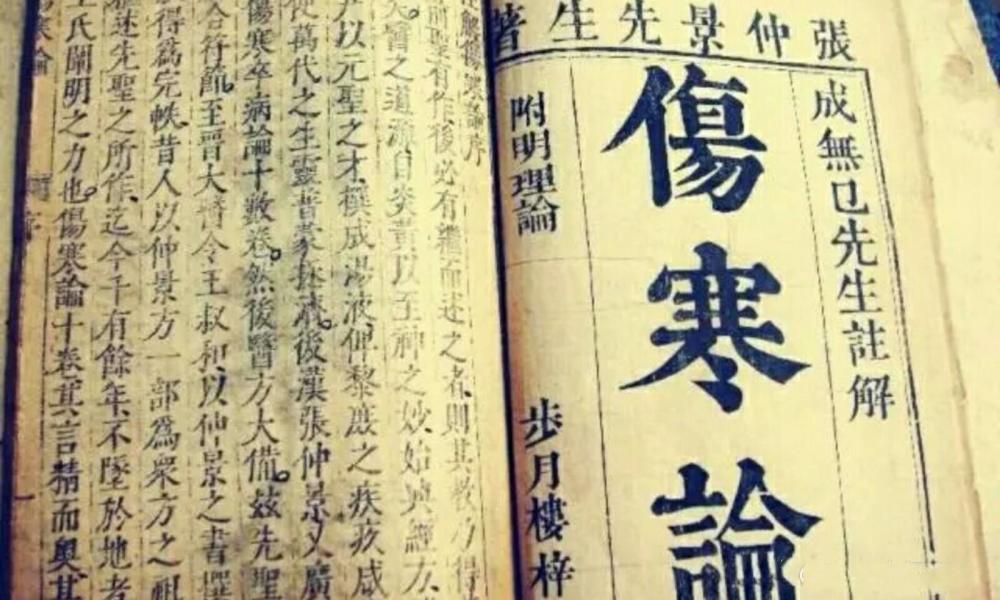 張仲景先生著
成無已先生註解
傷寒論
附明理論
步月樓梓
解傷寒論序
前聖有作後必有繼而述之者則其教乃得
矣醫之道源自炎黃以至神之妙始興經方
尹以元聖之才撰成湯液俾黎庶之疾疚咸
使萬代之生靈普蒙拯濟。後漢張仲景又廣
傷寒卒病論十數卷。然後醫方大備。茲先聖
合符節。至晉大醫令王叔和以仲景之書撰
得爲完帙昔人以仲景方一部爲衆方之祖
述先聖之所作迄今千有餘年不墜於地者
王氏闡明之力也。傷寒論十卷其言精而奧其
寒論